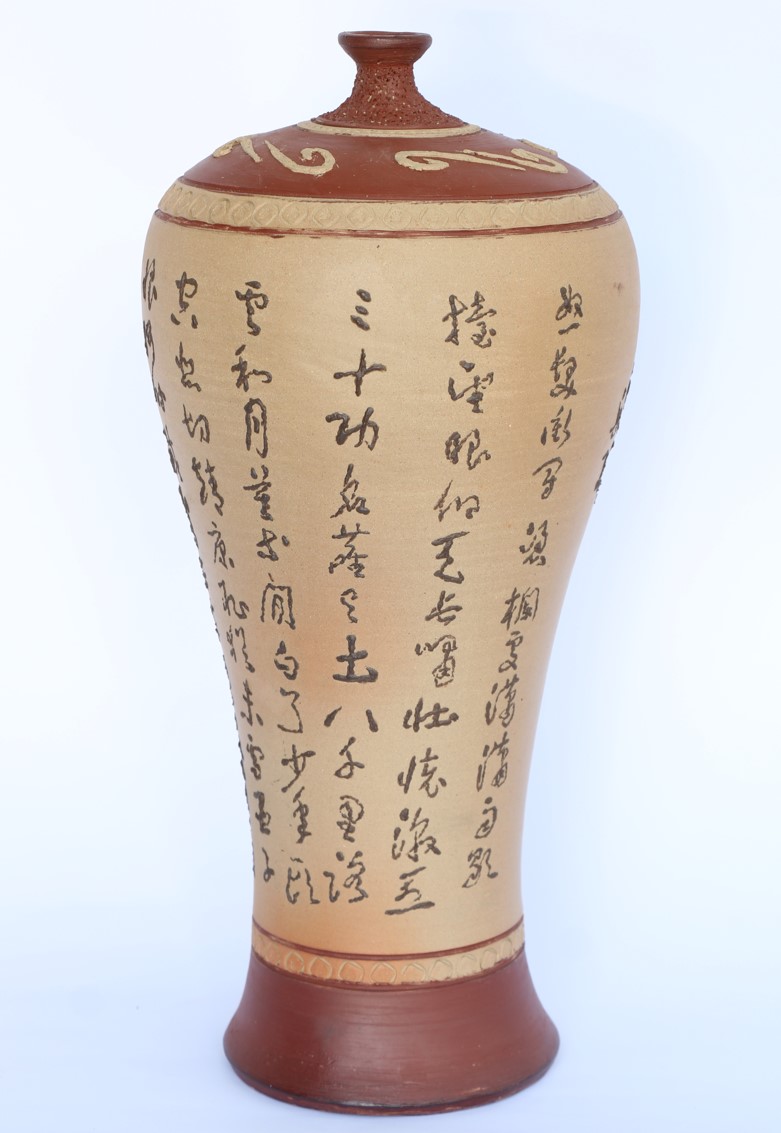 怒髮衝冠憑欄處瀟瀟雨歇
擡望眼仰天長嘯壯懷激烈
三十功名塵与土八千里路
雲和月莫等閒白了少年頭
空悲切靖康恥猶未雪臣子
恨何時